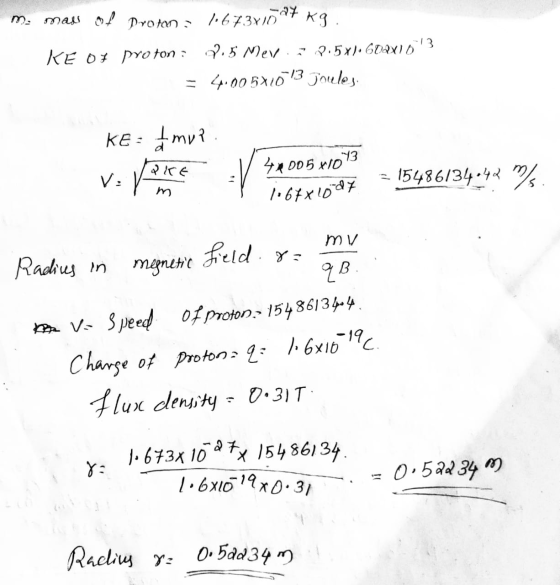 m= mass of proton = 1.673x10^-27 kg.
KE of proton = 2.5 Mev. = 2.5x1.602x10^-13
= 4.005x10^-13 joules.
KE = 1/2 mv².
V = √(2KE/m) = √(4x005x10^-13/1.67x10^-27) = 15486134.42 m/s.
Radius in megnetic field. r = mv/qB.
V = Speed of proton = 15486134.4.
Charge of proton = q = 1.6x10^-19 C.
flux density = 0.31T.
r = 1.673x10^-27 x 15486134./1.6x10^-19 x 0.31 = 0.52234 m
Radius r = 0.52234 m